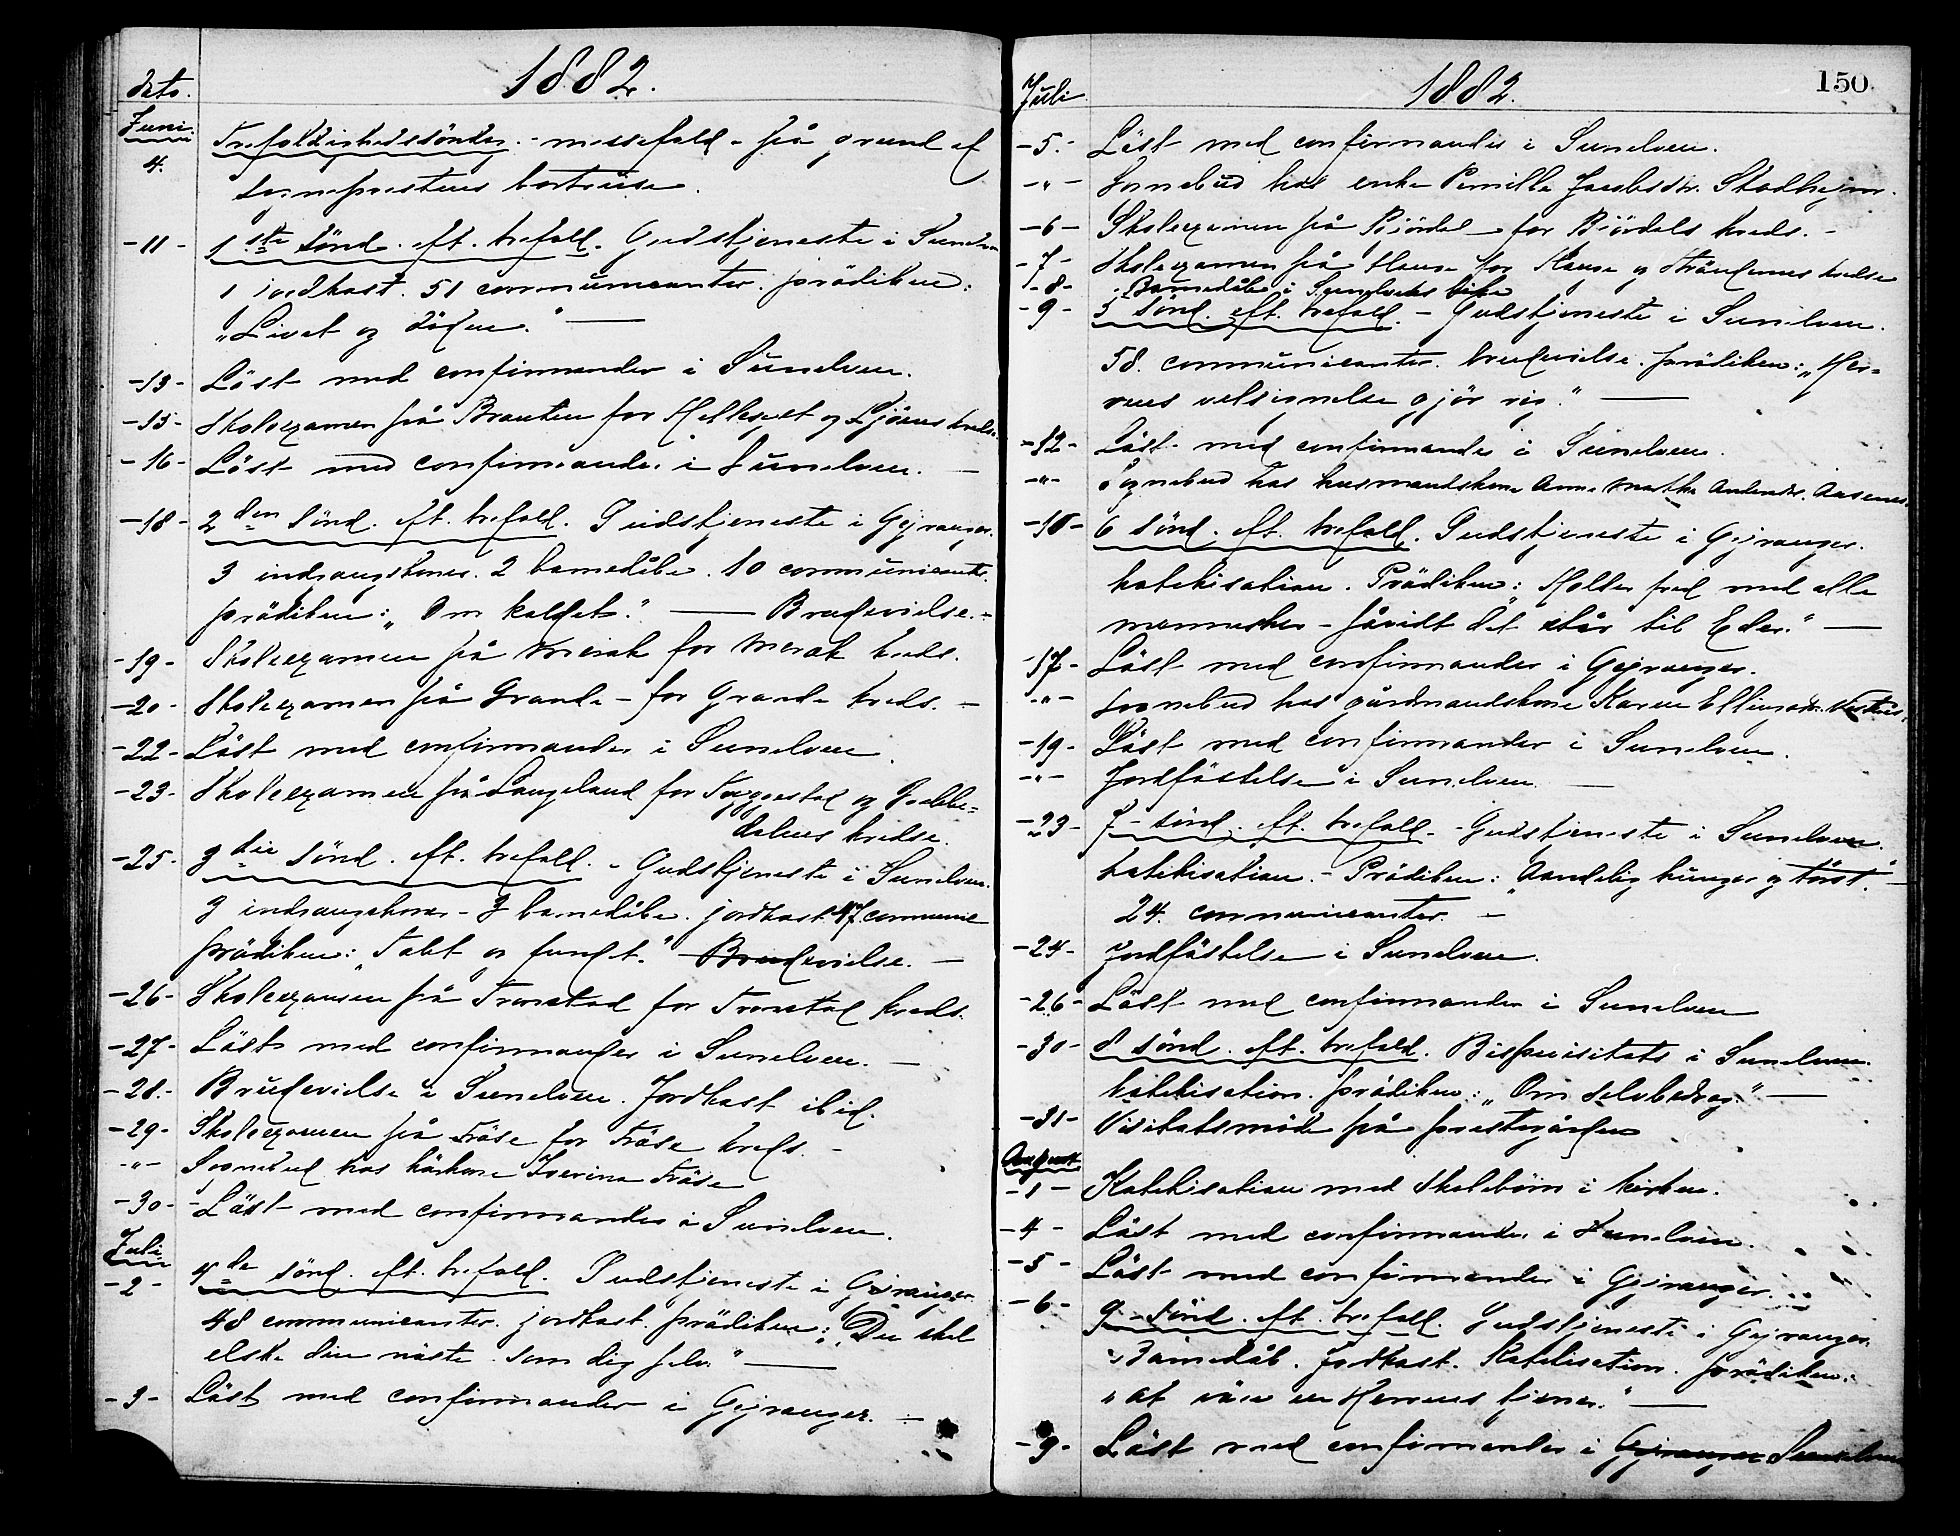 1882.
dato.
Juni
4. Trefoldighedssöndag. - messefald - på grund af
sogneprestens bortreise.
- 11 - 1ste sönd. eft. trefold. Gudstjeneste i Sunelven
1 jordkast. 51 communicanter. prädiken:
"Livet og döden." —
- 13 - Läst med confirmander i Sunelven.
- 15 - Skoleexamen på Brauten for Hellesylt og Ljöens kreds.
- 16 - Läst med confirmander i Sunelven. -
- 18 - 2den sönd. eft. trefold. Gudstjeneste i Gejranger.
3 indgangskoner. 2 barnedåbe. 10 communicanter.
prädiken: "Om kaldet." — Brudevielse. -
- 19 - Skoleexamen på Merak for Merak kreds.
- 20 - Skoleexamen på Grande - for Grande kreds. -
- 22 - Läst med confirmander i Sunelven.
- 23 - Skoleexamen på Langeland for Tryggestad og
dalens kredse.
- 25 - 3die sönd. eft. trefold. - Gudstjeneste i Sunelven.
3 indgangskoner - 3 barnedåbe. jordkast. 47 communic
prädiken: "Tabt og fundet." Brudevielse. -
- 26 - Skoleexamen på Tronstad for Tronstad kreds.
- 27 - Läst med confirmander i Sunelven. -
- 28 - Brudevielse i Sunelven. Jordkast ibid.
- 29 - Skoleexamen på Fråse for Fråse kreds. -
- " - Sognebud hos kårkone Iverine Fråse
- 30 - Läst med confirmander i Sunelven.
Juli
- 2 - 4de sönd. eft. trefold. Gudstjeneste i Gejranger
48 communicanter. jordkast. prädiken: "Du skal
elske din näste som dig selv." —
- 3 - Läst med confirmander i Gejranger. -
Juli 1882. 150
- 5 - Läst med confirmander i Sunelven.
- " - Sognebud hos enke Pernille Jacobsdtr. Stadheim.
- 6 - Skoleexamen på Björdal - for Björdals kreds. -
- 7 - Skoleexamen på Hauge for Hauge og Strandernes kredse
- 8 - Barnedåb i Sunelvens kirke
- 9 - 5 sönd. eft. trefold. - Gudstjeneste i Sunelven.
58. communicanter. brudevielse. prädiken: "Her-
rens velsignelse gjör rig." —
- 12 - Läst med confirmander i Sunelven.
- " - Sognebud hos husmandskone Anne Martha Andersdr. Aasenes.
- 16 - 6 sönd. eft. trefold. Gudstjeneste i Gejranger.
katekisation. Prädiken: "Holder fred med alle
mennesker - såvidt det står til Eder." —
- 17 - Läst med confirmander i Gejranger.
- " - Sognebud hos gårdmandskone Karen Ellingsdtr.
- 19 - Läst med confirmander i Sunelven.
- " - Jordfästelse i Sunelven. -
- 23 - 7 - sönd. eft. trefold. - Gudstjeneste i Sunelven.
katekisation. - Prädiken: "Aandelig hunger og törst." -
24. communicanter. -
- 24 - Jordfästelse i Sunelven.
- 26 - Läst med confirmander i Sunelven
- 30 - 8 sönd. eft. trefold. Bispevisitats i Sunelven.
katekisation. prädiken: "Om selvbedrag." —
- 31 - Visitatsmöde på prestegården
August
- 1 - Katekisation med skolebörn i kirken.
- 4 - Läst med confirmander i Sunelven.
- 5 - Läst med confirmander i Gejranger.
- 6 - 9 - sönd. eft. trefold. Gudstjeneste i Gejranger.
Barnedåb. Jordkast. Katekisation. prädiken:
"at väre en Herrens tjener." —
- 9 - Läst med confirmander i Gejranger Sunelven